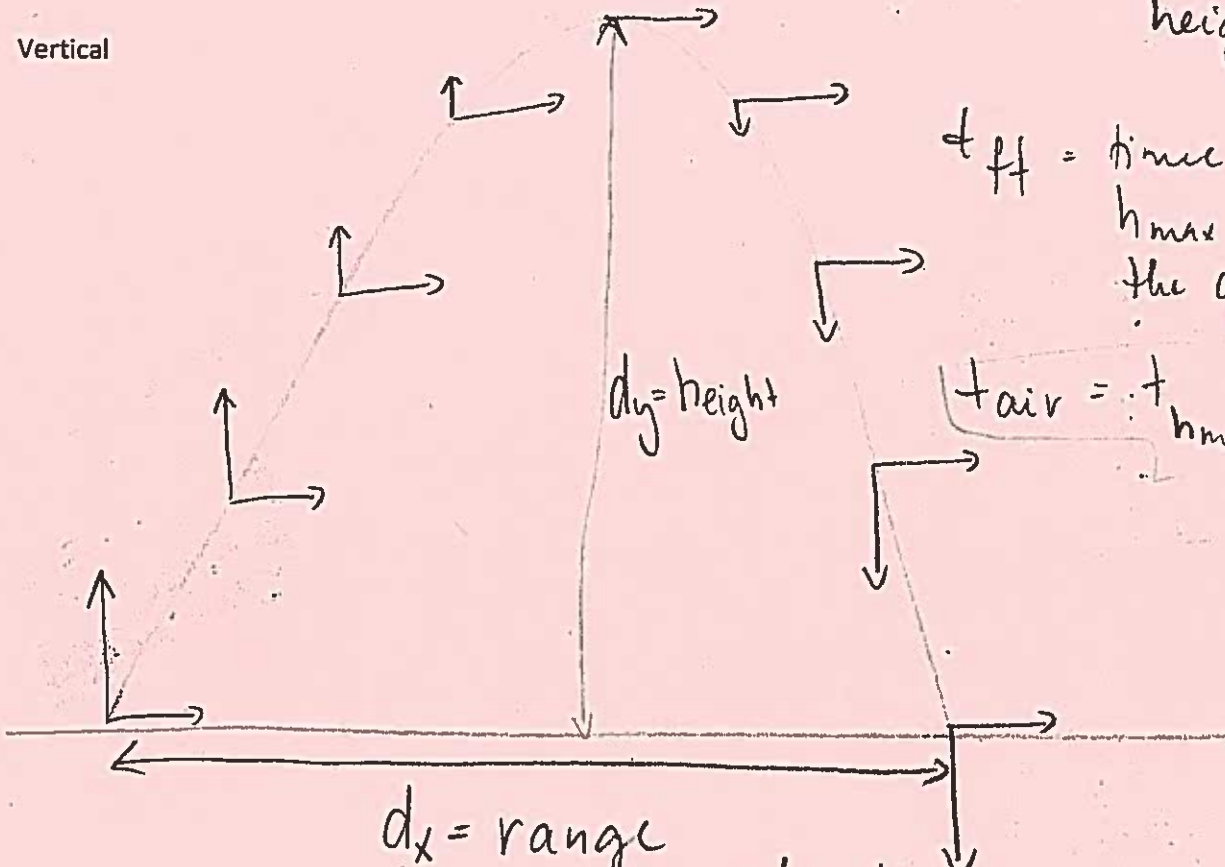 Vertical
t ff = time
h max
the
dy = height
t air = t
dx = range